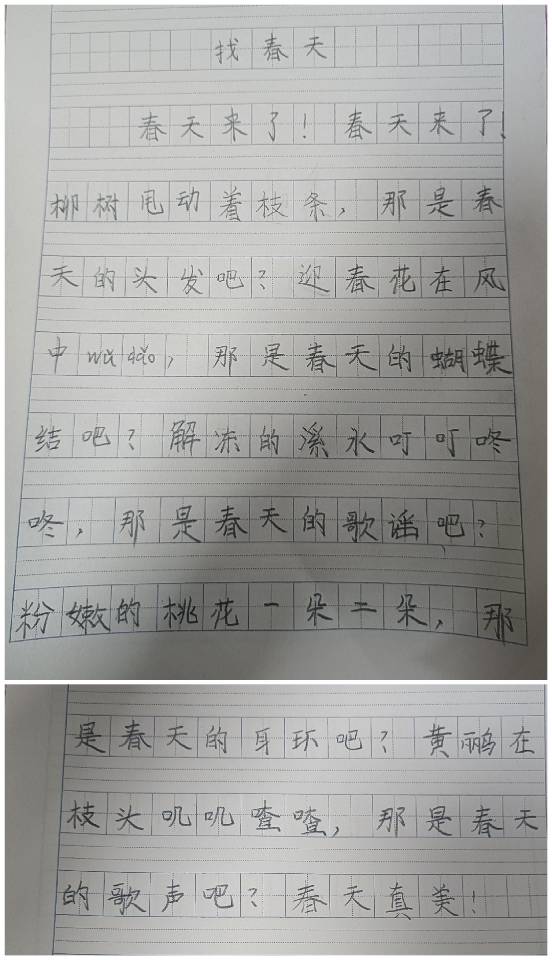 找春天
春天来了！春天来了！
柳树甩动着枝条，那是春
天的头发吧？迎春花在风
中wǔ dǎo，那是春天的蝴蝶
结吧？解冻的溪水叮叮咚
咚，那是春天的歌谣吧？
粉嫩的桃花一朵二朵，那
是春天的耳环吧？黄鹂在
枝头叽叽喳喳，那是春天
的歌声吧？春天真美！